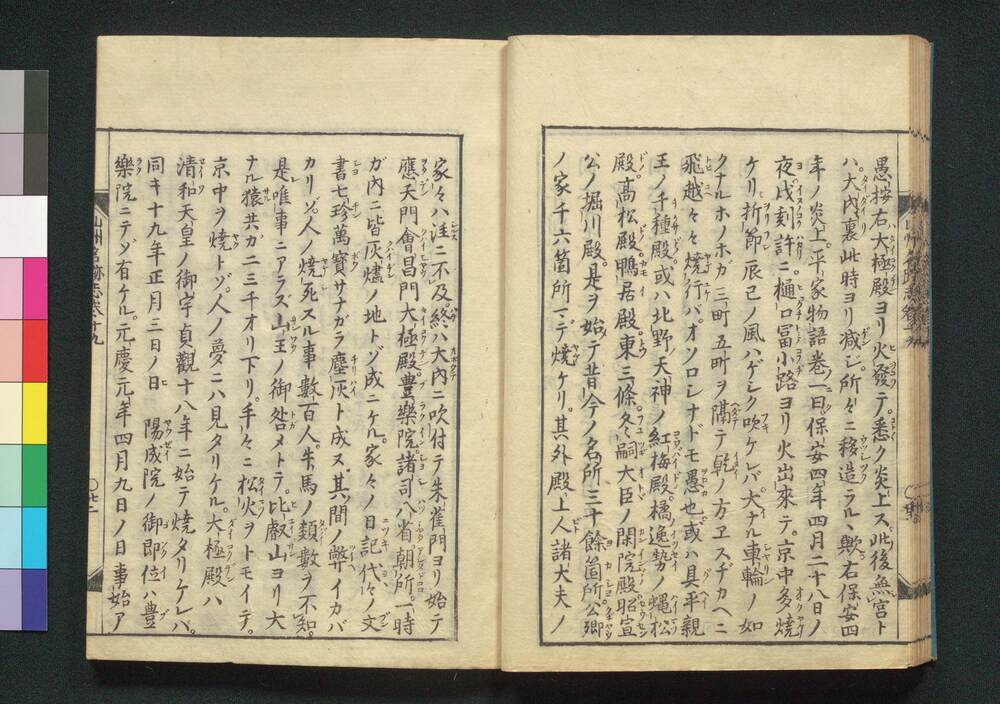 愚按右大極殿ヨリ火發テ悉ク炎上ス此後無宮ト
ハ大内裏此時ヨリ減ジ所々ニ移造ラル、歟右保安四
年ノ炎上平家物語巻一曰保安四年四月二十八日ノ
夜戌刻許ニ樋口冨小路ヨリ火出來テ京中多焼
ケリ折節辰己ノ風ハゲシク吹ケレバ大ナル車輪ノ如
クナルホノホガ三町五町ヲ隔テ乾ノ方エスヂカヘニ
飛越々々焼行ハオソロシナドモ愚也或ハ具平親
王ノ千種殿或ハ北野天神ノ紅梅殿橘逸勢ノ蠅松
殿髙松殿鴨居殿東三條冬嗣大臣ノ閑院殿昭宣
公ノ堀川殿是ヲ始テ昔今ノ名所三十餘箇所公卿
ノ家千六箇所マデ焼ケリ其外殿上人諸大夫ノ
家々ハ注ニ不及終ハ大内ニ吹付テ朱雀門ヨリ始テ
應天門會昌門大極殿豊樂院諸司八省朝所一時
ガ内ニ皆灰燼ノ地トゾ成ニケル家々ノ日記代々ノ文
書七珍萬寳サナガラ塵灰ト成ヌ其間ノ弊イカバ
カリゾ人ノ焼死スル事數百人牛馬ノ類數ヲ不知
是唯事ニアラズ山王ノ御咎メトテ比叡山ヨリ大
ナル猿共ガ二三千オリ下リ手々ニ松火ヲトモイテ
京中ヲ焼トゾ人ノ夢ニハ見タリケル大極殿ハ
清和天皇ノ御宇貞觀十八年ニ始テ焼タリケレバ
同キ十九年正月三日ノ日 陽成院ノ御即位ハ豊
樂院ニテゾ有ケル元慶元年四月九日ノ日事始ア
山州名跡志巻十九